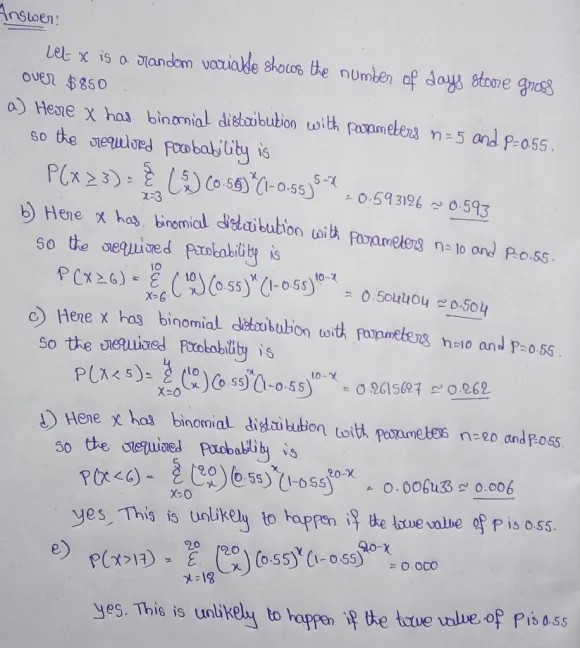 Answer:
Let x is a random variable shows the number of days store gross
over $850
a) Here x has binomial distribution with parameters n=5 and P=0.55.
so the required probability is
P(x ≥ 3) = 5 Σ x=3 (5 x) (0.55)^x (1-0.55)^5-x = 0.593126 ≃ 0.593
b) Here x has binomial distribution with parameters n=10 and P=0.55.
so the required probability is
P(x≥6) = 10 Σ x=6 (10 x) (0.55)^x (1-0.55)^10-x = 0.504404 ≃ 0.504
c) Here x has binomial distribution with parameters n=10 and P=0.55.
so the required probability is
P(x<5) = 4 Σ x=0 (10 x) (0.55)^x (1-0.55)^10-x = 0.2615627 ≃ 0.262
d) Here x has binomial distribution with parameters n=20 and P=0.55.
so the required probability is
P(x<6) - 5 Σ x=0 (20 x) (0.55)^x (1-0.55)^20-x = 0.006433 ≃ 0.006
yes, This is unlikely to happen if the true value of P is 0.55.
e) P(x>17) = 20 Σ x=18 (20 x) (0.55)^x (1-0.55)^20-x = 0.000
yes. This is unlikely to happen if the true value of P is 0.55